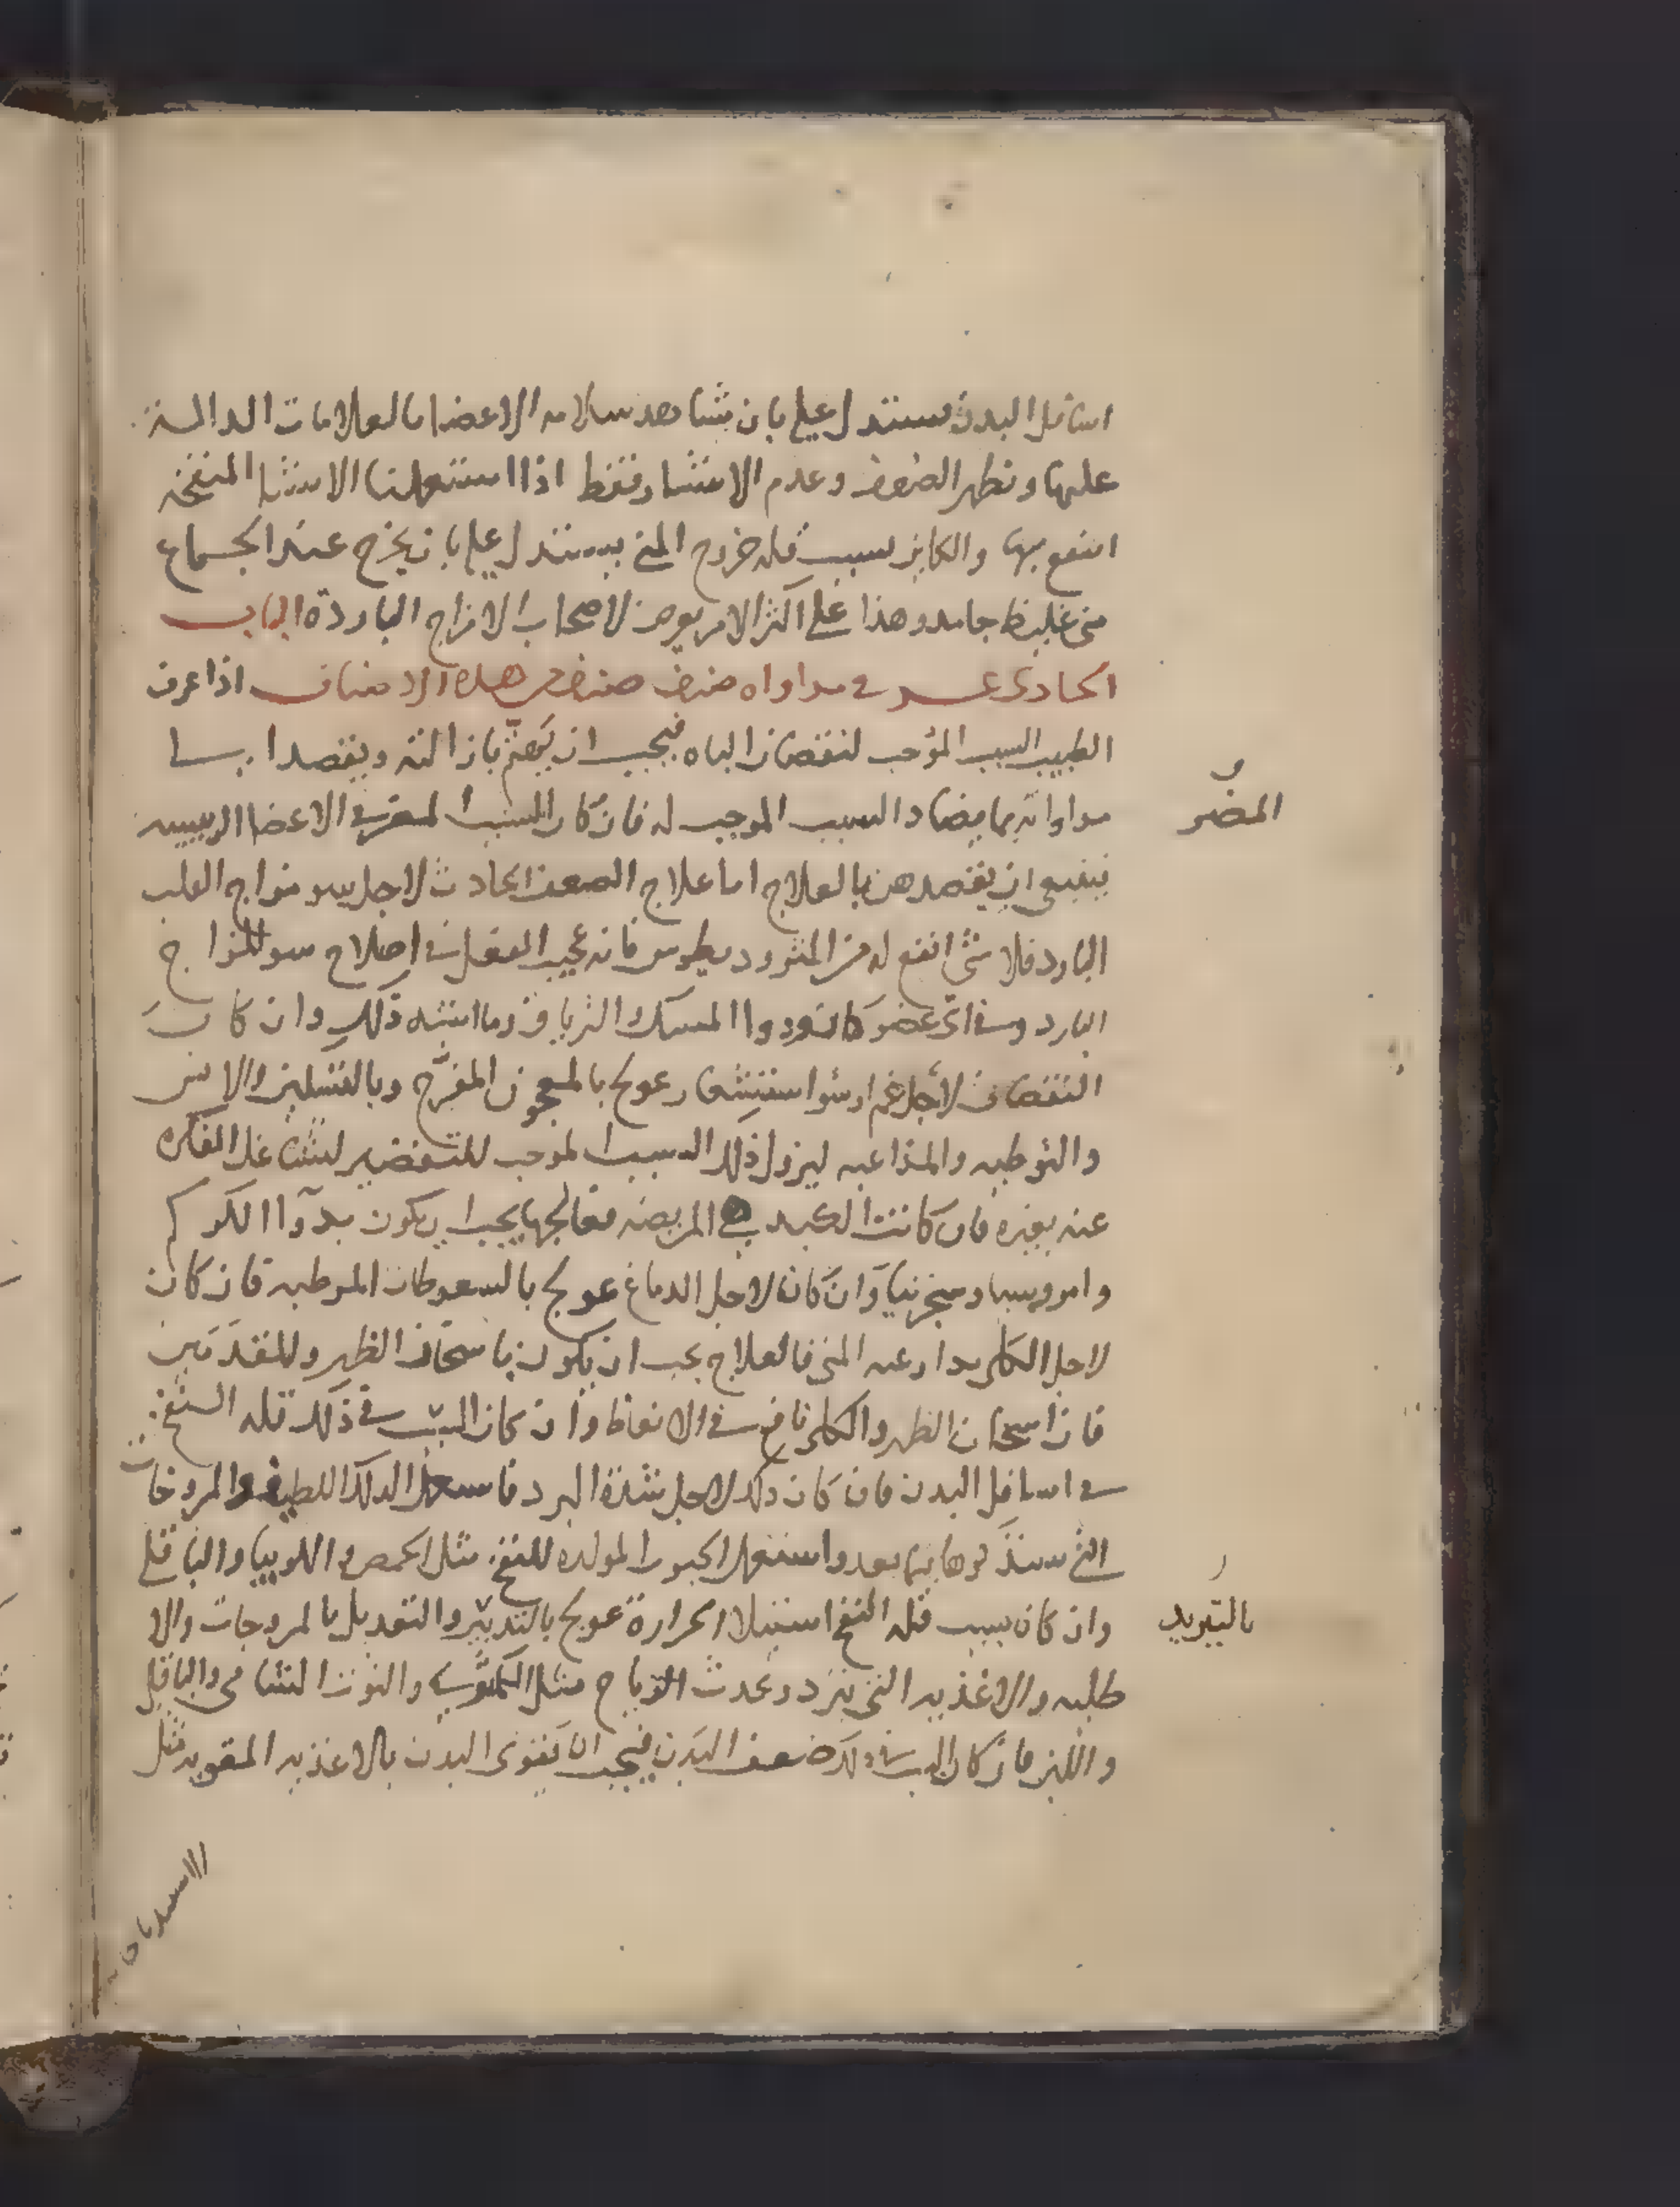 اسافل البدن فيستدل عليه بان تشاهد سلامه الاعضا بالعلامات الدالة
عليها ويظهر الضعف وعدم الانتشار فقط اذا استعملنا الاشيا المنفخه
انتفع بها والكاين بسبب قله خروج المني يستدل عليه بان يخرج عند الجماع
مني غليظ جامد وهذا علي اكثر الامر يعرض لاصحاب الامزاج الباردة الباب
الحادي عشر في مداواه صنف صنف من هذه الاصناف اذا عرف
الطبيب السبب الموجب لنقصان الباه فيجب ان يهتم بازالته ويقصد الي
مداواته بما يضاد السبب الموجب له فان كان السبب المضر في الاعضا الرييسيه
فينبغي ان يقصدهن بالعلاج اما علاج الضعف الحادث لاجل سو مزاج القلب
البارد فلا شي انفع له من المثروديطوس فانه عجيب الفعل في اصلاح سو المزاج
البارد وفي اي عضو كان ودوا المسك والترياق وما اشبه ذلك وان كان
النقصان لاجل غم او سوا استشعار عولج بالمعجون المفرح وبالتسلين والانس
والتوطيه والمداعبه ليزول ذلك السبب الموجب للتنقيص لتشاغل الفكره
عنه بغيره فان كانت الكبد هي المريضه فعالجها يجب ان يكون بدوا الكركم
وامروسيا وسنجرنيا وان كان لاجل الدماغ عولج بالسعوطات المرطبه فان كان
لاجل الكلي بدا وعيه المني فالعلاج يجب ان يكون باسخان الظهر والمقدمين
فان اسخان الظهر والكلي نافع في الانعاظ وان كان السبب في ذلك قله النفخ
في اسافل البدن فان كان ذلك لاجل شدة البرد فاستعمل الدلك اللطيف والمروخات
التي سنذكرها فيما بعد واستعمل الحبوب المولده للنفخ مثل الحمص واللوبيا والباقلي
وان كان بسبب قله النفخ استيلا الحرارة عولج بالتدبير والتعديل بالمروخات والا
طليه والاغذيه التي تبرد وتحدث الرياح مثل الكمثري والتوت الشامي والباقلي
واللبن فان كان السبب في ذلك ضعف البدن فيجب ان يقوي البدن بالاغذيه المقويه مثل
المضر
بالتبريد